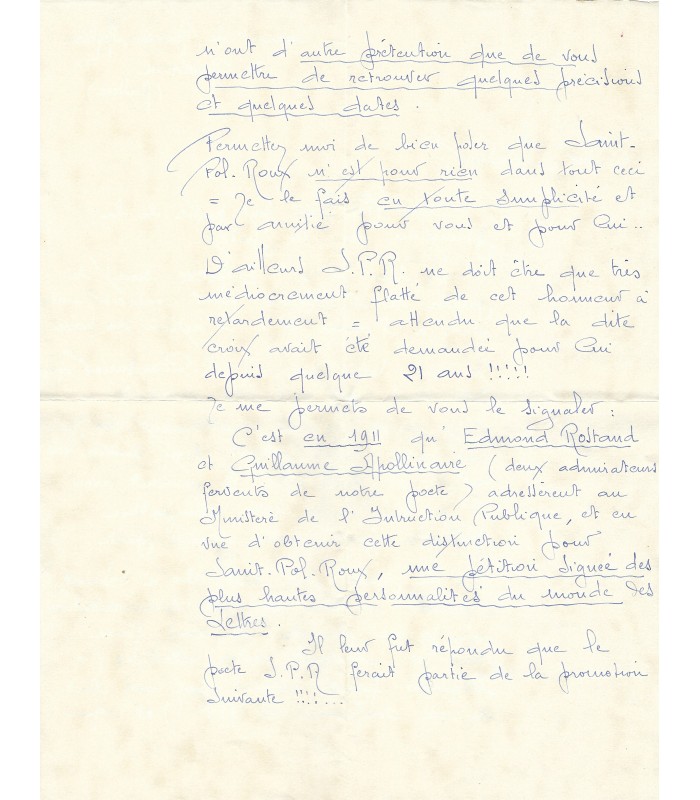 n'ont d'autre prétention que de vous
permettre de retrouver quelques précisions
et quelques dates.
Permettez moi de bien poser que Saint-
Pol. Roux n'est pour rien dans tout ceci
= Je le fais en toute simplicité et
par amitié pour vous et pour lui..
D'ailleurs S.P.R. ne doit être que très
médiocrement flatté de cet honneur à
retardement = attendu que la dite
croix avait été demandée pour lui
depuis quelque 21 ans !!!!!
Je me permets de vous le signaler :
C'est en 1911 qu'Edmond Rostand
et Guillaume Apollinaire (deux admirateurs
fervents de notre poete) adressèrent au
Ministère de l'Intruction Publique, et en
vue d'obtenir cette distinction pour
Saint-Pol. Roux, une pétition signée des
plus hautes personnalités du monde des
Lettres.
Il leur fut répondu que le
poete S.P.R ferait partie de la promotion
suivante !!!!...